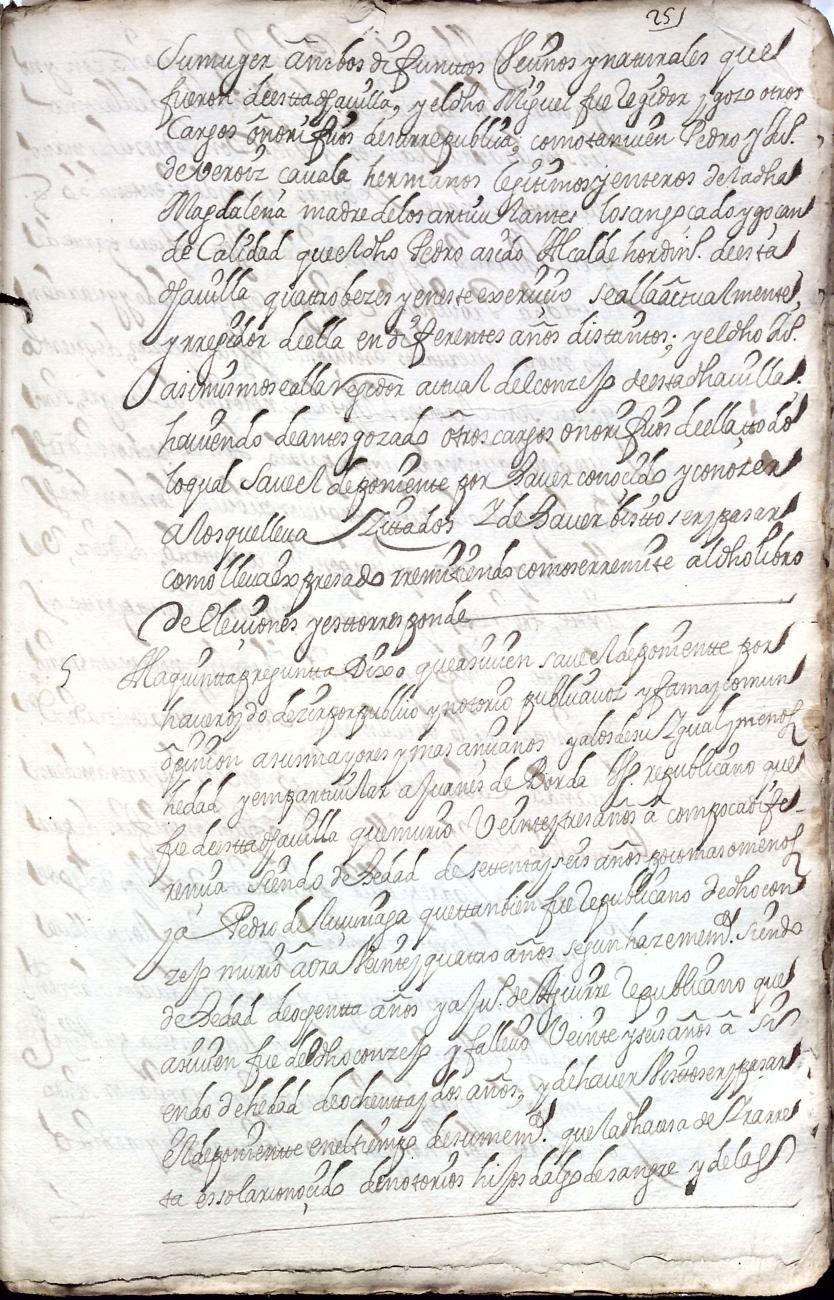 251
Su muger ambos difunttos Veçinos y naturales que
fueron de estta dha villa, y el dho Miguel fue regidor y gozo otros
Cargos onorificos de su rrepublica, como tamvien Pedro y Jul.
de veroiz cavala hermanos legitimos y enteros de la dha
Magdalena madre de los artticulantes los an gocado y goçan
de Calidad que el dho Pedro a sido Alcalde hordin.º de esta
dha villa quattro bezes y en este exerçiçio se alla actualmente,
y rregidor de ella en diferentes años distintos; y el dho Jul.
asimismo se alla regidor actual del conzejo de esta dha villa.
haviendo de antes gozado otros cargos onorificos de ella, ttodo
lo qual save el deponiente por haver conocido y conozer
a los que lleva Zittados y de haver bistto ser y pasar
como lleva expresado rremitiendo como se rremite al dho libro
de Elecciones y estto rresponde
5 A la quintta pregunta Dixo que asi vien save el deponiente por
haver oydo dezir por publico y notorio publica voz y fama y comun
opinion a sus mayores y mas ançianos y a los de su Ygual y menor
hedad y en particular a Juanes de Borda republicano que
fue de estta dha villa que murio Veinte y tres años a con poca dife-
rençia siendo de hedad de settenta y seis años poco mas o menos
ya Pedro de que ttambien fue republicano de dho con
zejo murio aora Veinte y quatro años segun haze mem.ª siendo
de hedad de ochentta años y a Ju.º de Aguirre republicano que
asi vien fue del dho conzejo y falleçio Veinte y seis años a si
endo de hedad de ochentta y dos años, y de haver Visto ser y pasar
El deponiente en el tiempo de su mem.ª que la dha casa de
ta es solar conoçido de notorios hijos dalgo de sangre y de las